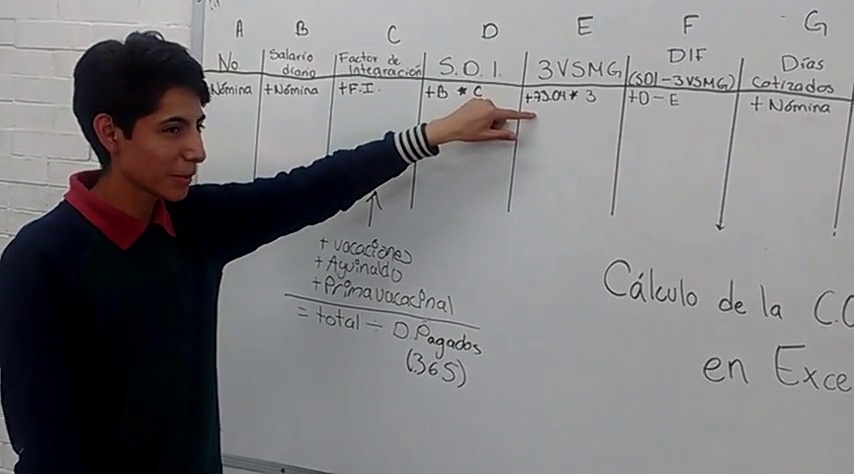 A B C D E F G
No
Salario
diario
Factor de
Integracion
S.D.I.
3VSMG
DIF
(SDI-3VSMG)
Días
Cotizados
Nómina
+Nómina
+F.I.
+B * C
+73.04* 3
+D-E
+ Nómina
+ vacaciones
+ Aguinaldo
+Prima vacacinal
= total ÷ D.Pagados
(365)
Cálculo de la
en